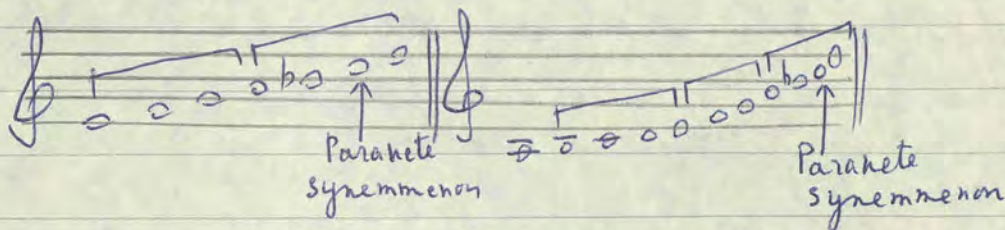 Paranete
synemmenon
Paranete
synemmenon